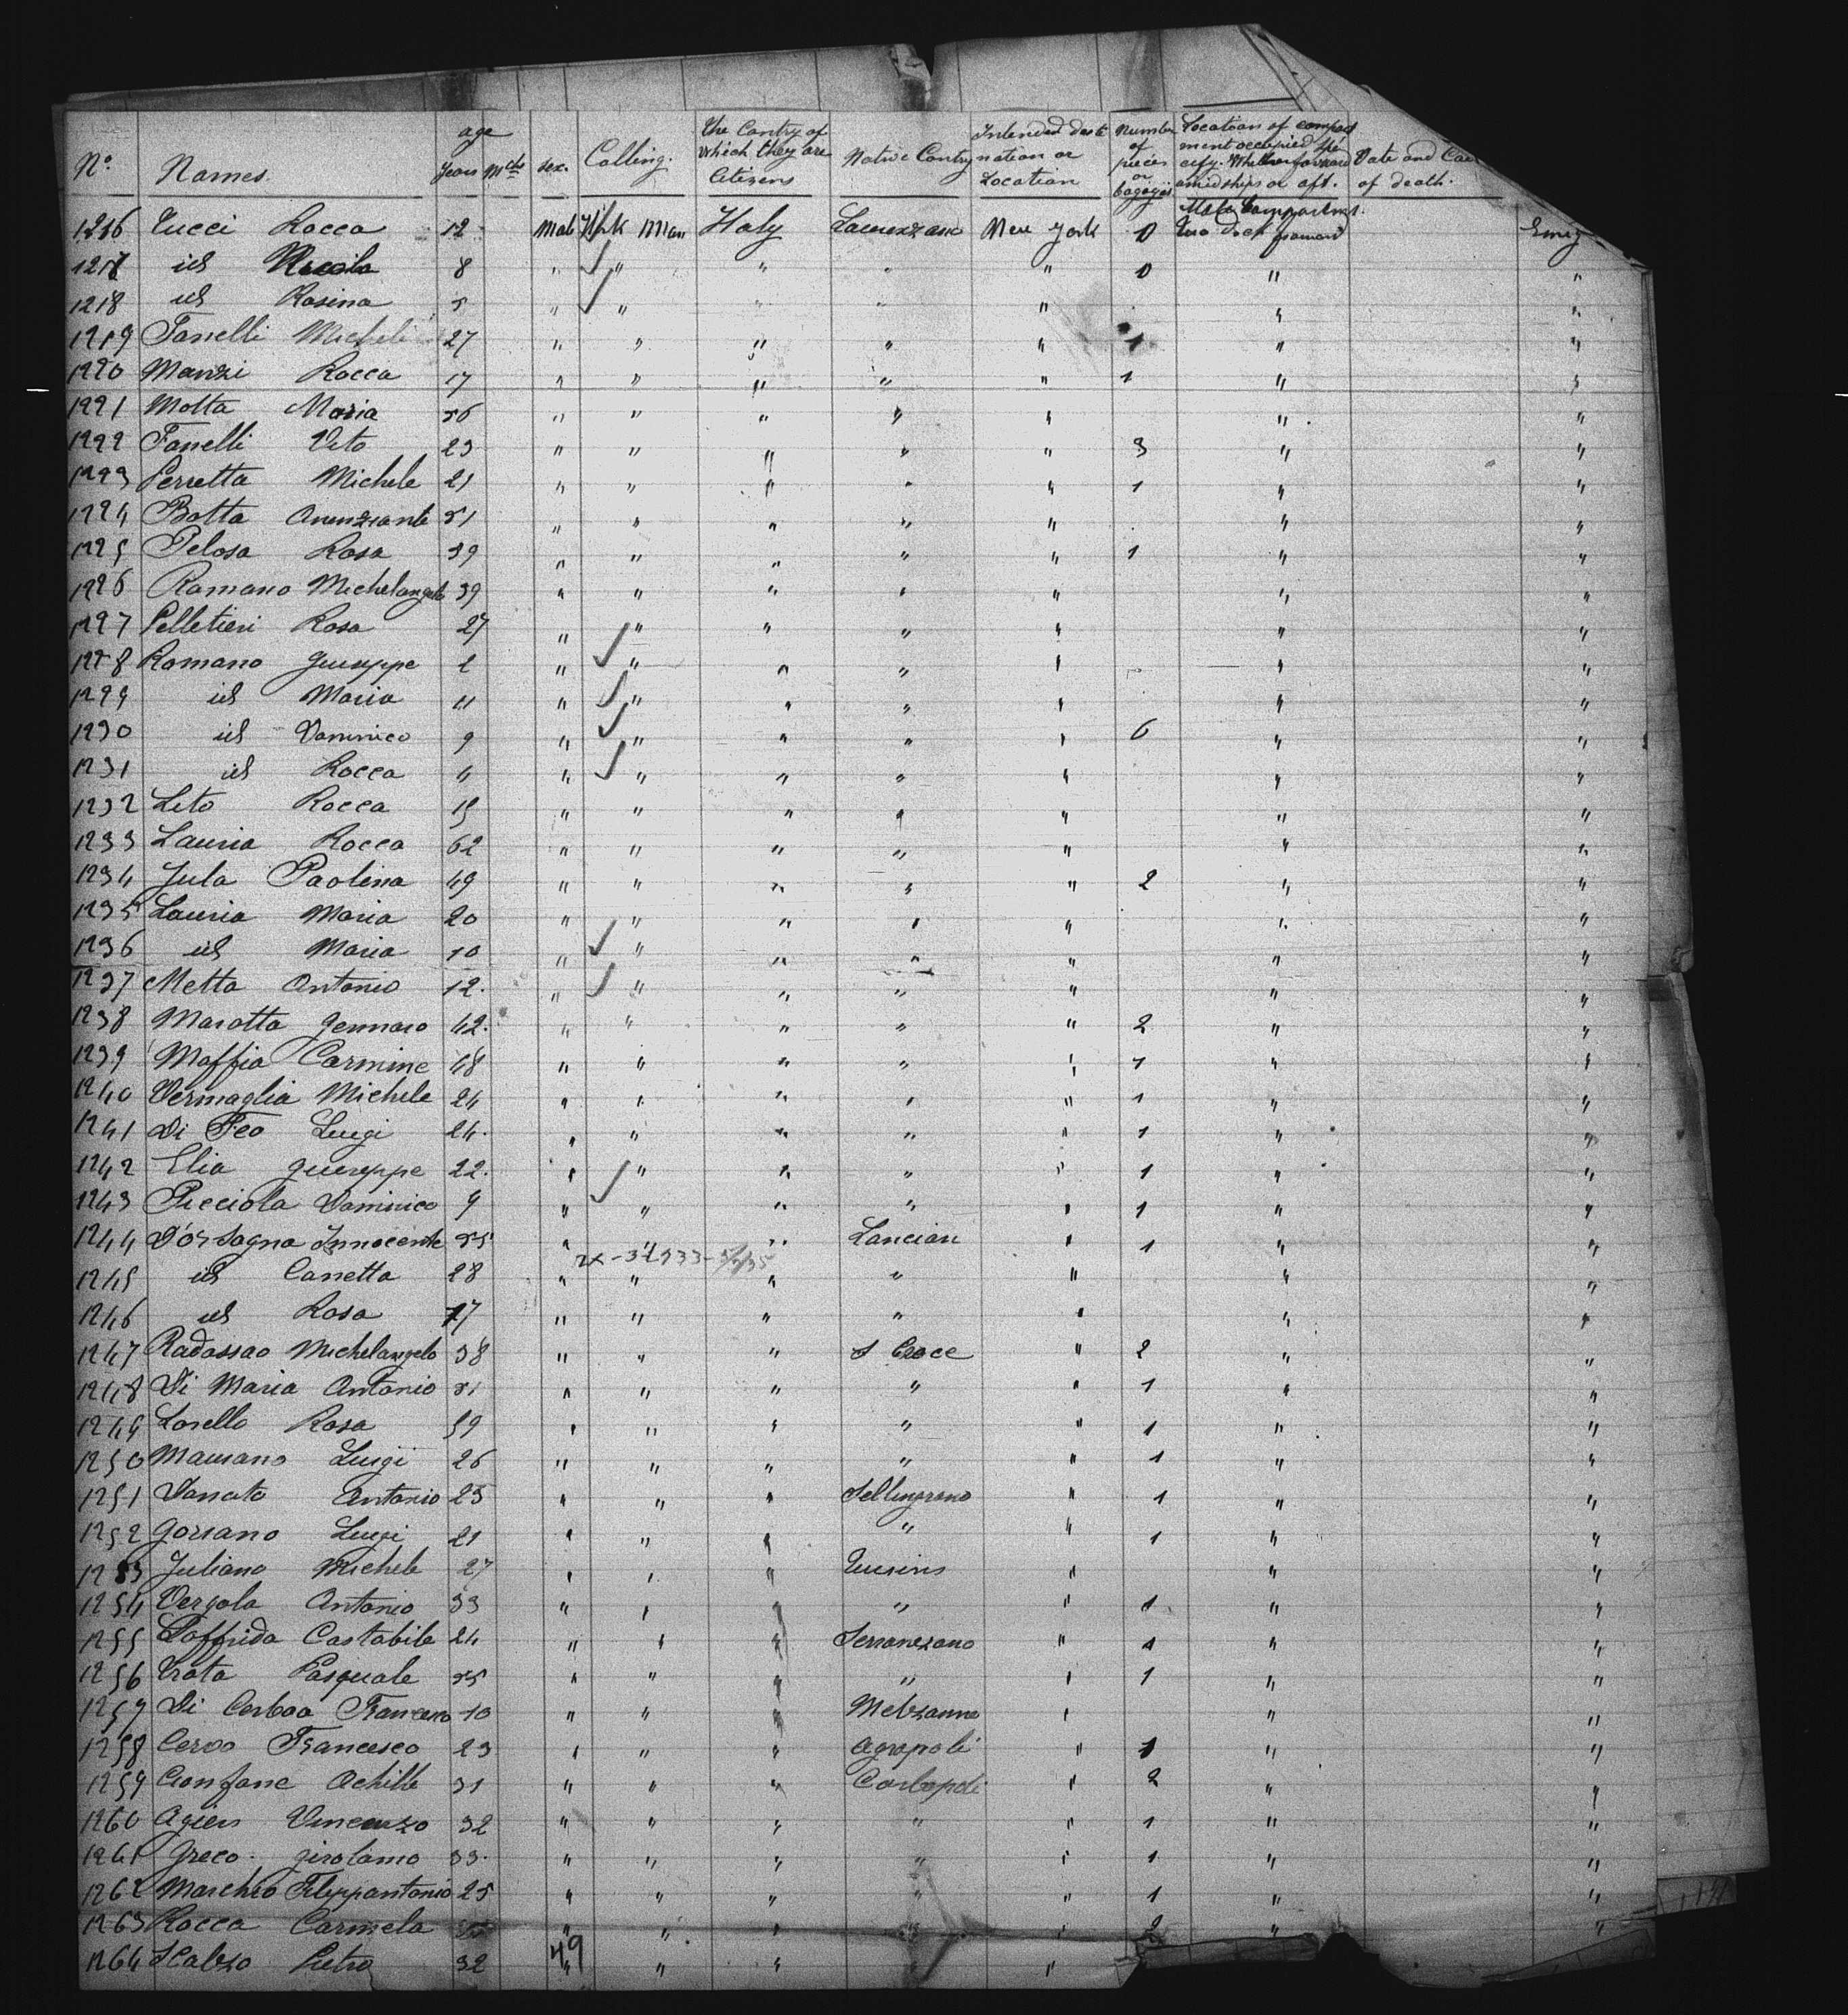 No. Names. age Years Mths sex. Calling. The Contry of which they are Citizens Native Contry Intended desti nation or Location Number of pieces or bagages Location of compart ment occupied spe cify. Whether forward amidships or aft. Date and Cau of death.
1216 Tucci Rocca 12 Male Work Man Italy Laurenzana New York 0 Male Compartmt. Two deck forward Emig
1217 id Nicola 8 " " " " " 0 " "
1218 id Rosina 5 " " " " " " "
1219 Fanelli Micheli 27 " " " " " 1 " "
1220 Manzi Rocca 17 " " " " " 1 " "
1221 Motta Maria 56 " " " " " " "
1222 Fanelli Vito 23 " " " " " 3 " "
1223 Perretta Michele 21 " " " " " 1 " "
1224 Botta Anunziante 51 " " " " " " "
1225 Pelosa Rosa 39 " " " " " 1 " "
1226 Romano Michelangelo 39 " " " " " " "
1227 Pelletieri Rosa 27 " " " " " " "
1228 Romano Giuseppe 2 " " " " " " "
1229 id Maria 11 " " " " " " "
1230 id Dominico 9 " " " " " 6 " "
1231 id Rocca " " " " " " " "
1232 Leto Rocca 15 " " " " " " "
1233 Lauria Rocca 62 " " " " " " "
1234 Jula Paolina 49 " " " " " 2 " "
1235 Lauria Maria 20 " " " " " " "
1236 id Maria 10 " " " " " " "
1237 Metta Antonio 12. " " " " " " "
1238 Marotta Gennaro 42. " " " " " 2 " "
1239 Maffia Carmine 48 " " " " " 1 " "
1240 Vermaglia Michele 24 " " " " " 1 " "
1241 Di Feo Luigi 24. " " " " " 1 " "
1242 Elia Giuseppe 22. " " " " " 1 " "
1243 Picciola Dominico 9 " " " " " 1 " "
1244 D'orsogna Innocente 55 " " " Lancian " 1 " "
2x-
1245 id Canetta 28 " " " " " " "
1246 id Rosa 17 " " " " " " "
1247 Radassao Michelangelo 38 " " " S Croce " 2 " "
1248 Di Maria Antonio 51 " " " " " 1 " "
1249 Lorello Rosa 59 " " " " " 1 " "
1250 Mausano Luigi 26 " " " " " 1 " "
1251 Donato Antonio 25 " " " " 1 " "
1252 Gorsano Luigi 21 " " " " " 1 " "
1253 Juliano Michele 27 " " " " " "
1254 Vergola Antonio 33 " " " " " 1 " "
1255 Castabile 24 " " " " 1 " "
1256 Pasquale 55 " " " " " 1 " "
1257 Di Francesco 10 " " " " " "
1258 Cervo Francesco 23 " " " Agropoli " 1 " "
1259 Achille 31 " " " " 2 " "
1260 Vincenzo 32 " " " " " 1 " "
1261 Greco. Girolamo 33. " " " " " 1 " "
1262 Filippantonio 25 " " " " " 1 " "
1263 Rocca Carmela " " " " " 2 " "
1264 Scalzo Pietro 32 " " " " "
49